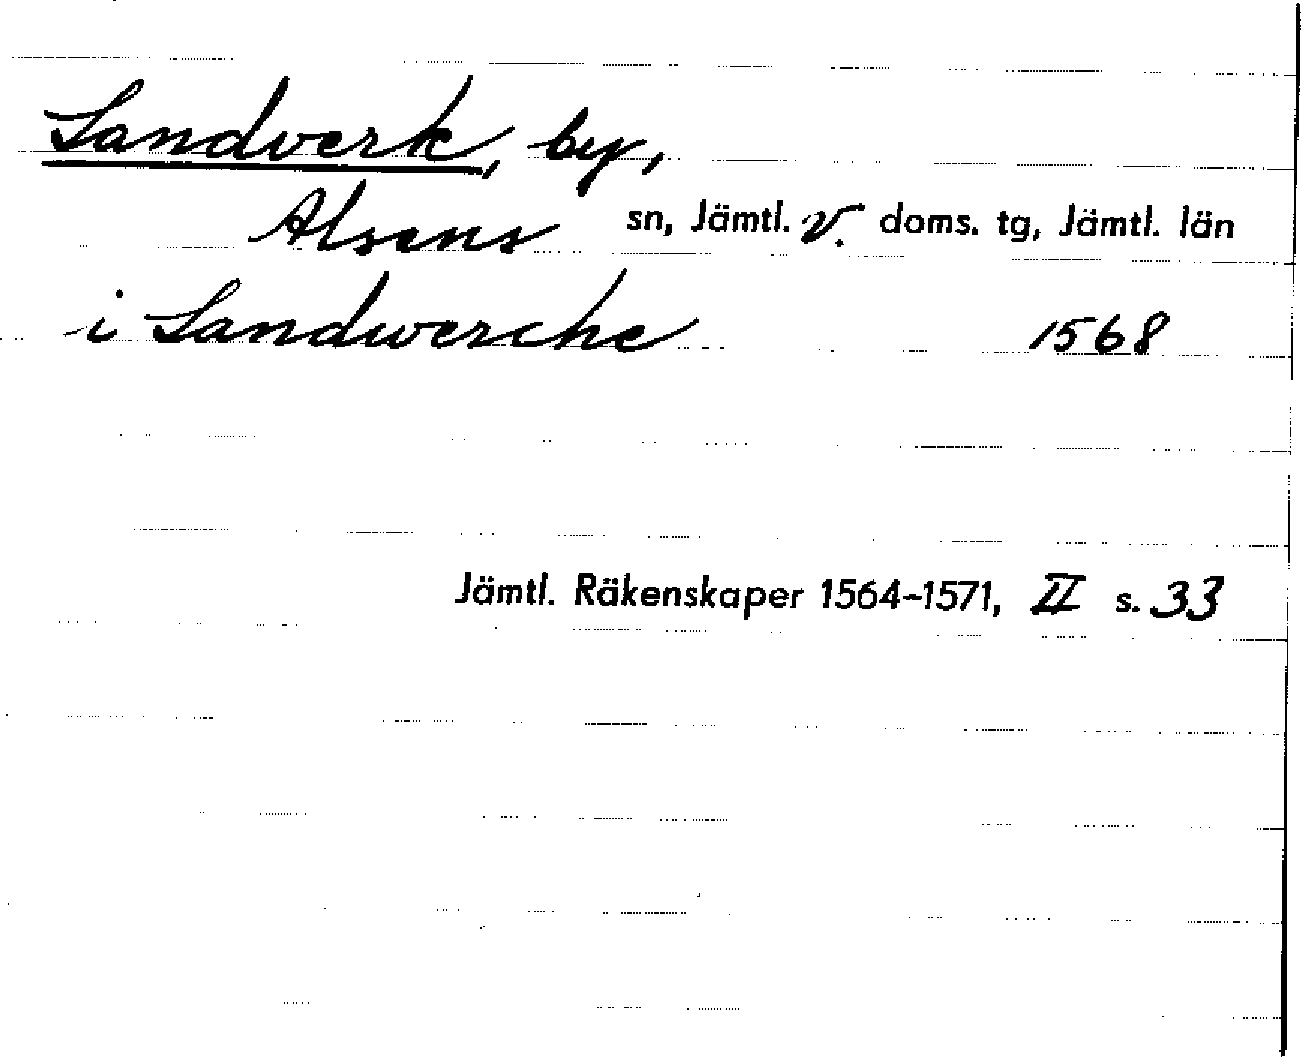 Sandverk, by,
Alsens sn, Jämtl. v. doms. tg, Jämtl. län
i Sandwerche 1568
Jämtl. Räkenskaper 1564-1571, II s. 33